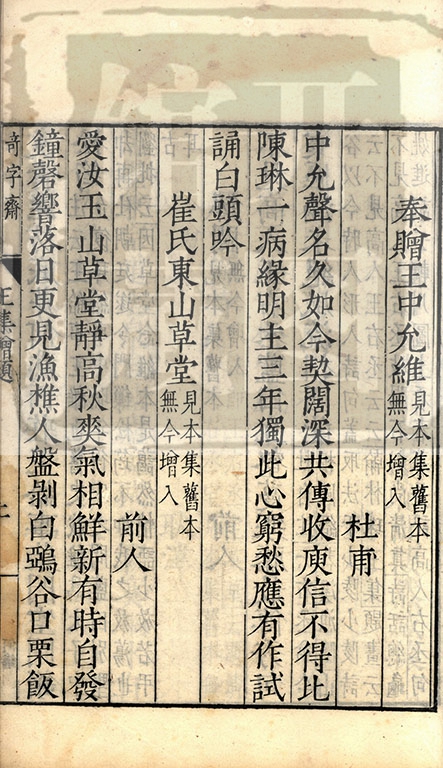 奉贈王中允維見本集舊本無今增入
杜甫
中允聲名久如今契闊深共傳收庾信不得比
陳琳一病緣明主三年獨此心窮愁應有作試
誦白頭吟
崔氏東山草堂見本集舊本無今增入
前人
愛汝玉山草堂靜高秋爽氣相鮮新有時自發
鐘磬響落日更見漁樵人盤剥白鵶谷口栗飯
奇字齋